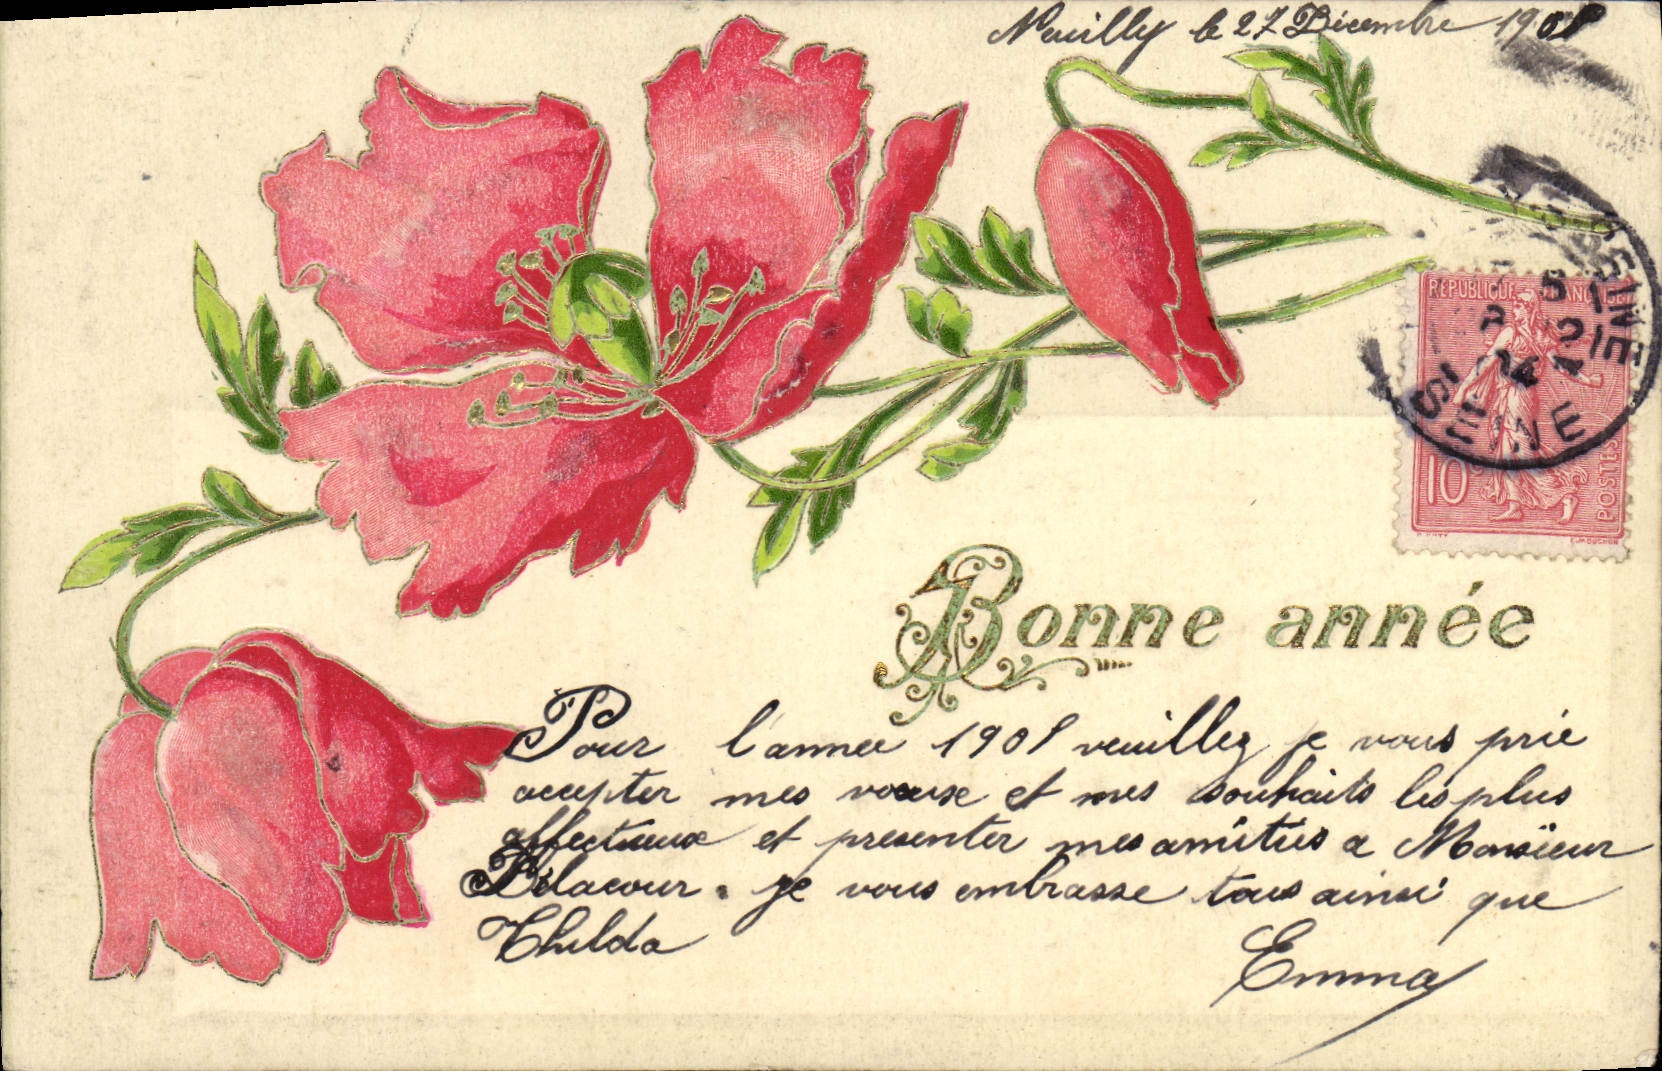 Neuilly le 27 Décembre 190
REPUBLIQUE FRANÇAISE
SEINE
SEINE
10c
POSTES
E.MOUCHON
Bonne année
Pour l'annee 190 veuillez je vous prie
accepter mes voeuxe et mes souhaits les plus
affectueux et presenter mes amitiés a Monsieur
Délacour. je vous embrasse tous ainsi que
Thilda
Emma